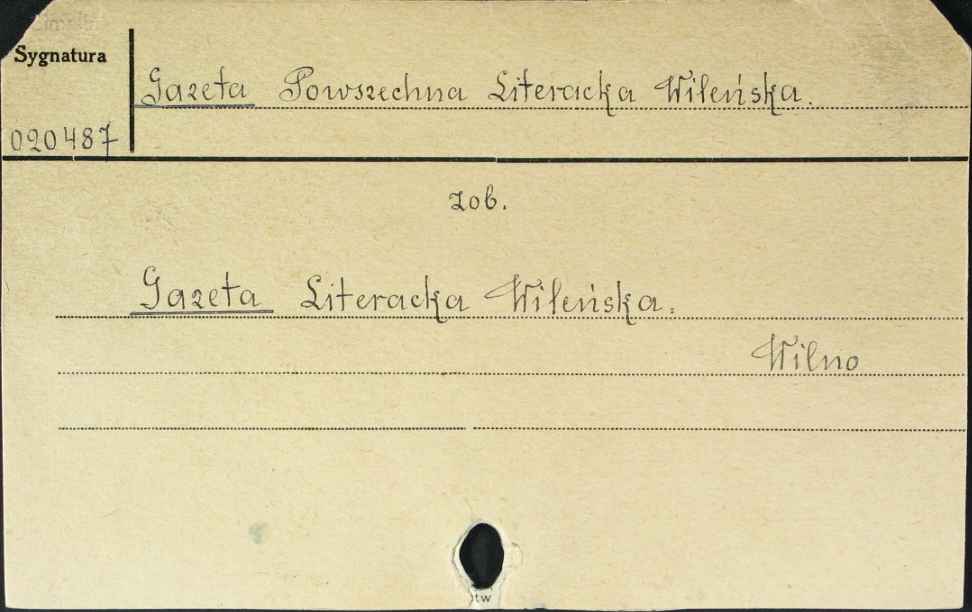 Sygnatura
Gazeta Powszechna Literacka Wileńska.
020487
zob.
Gazeta Literacka Wileńska.
Wilno
tw